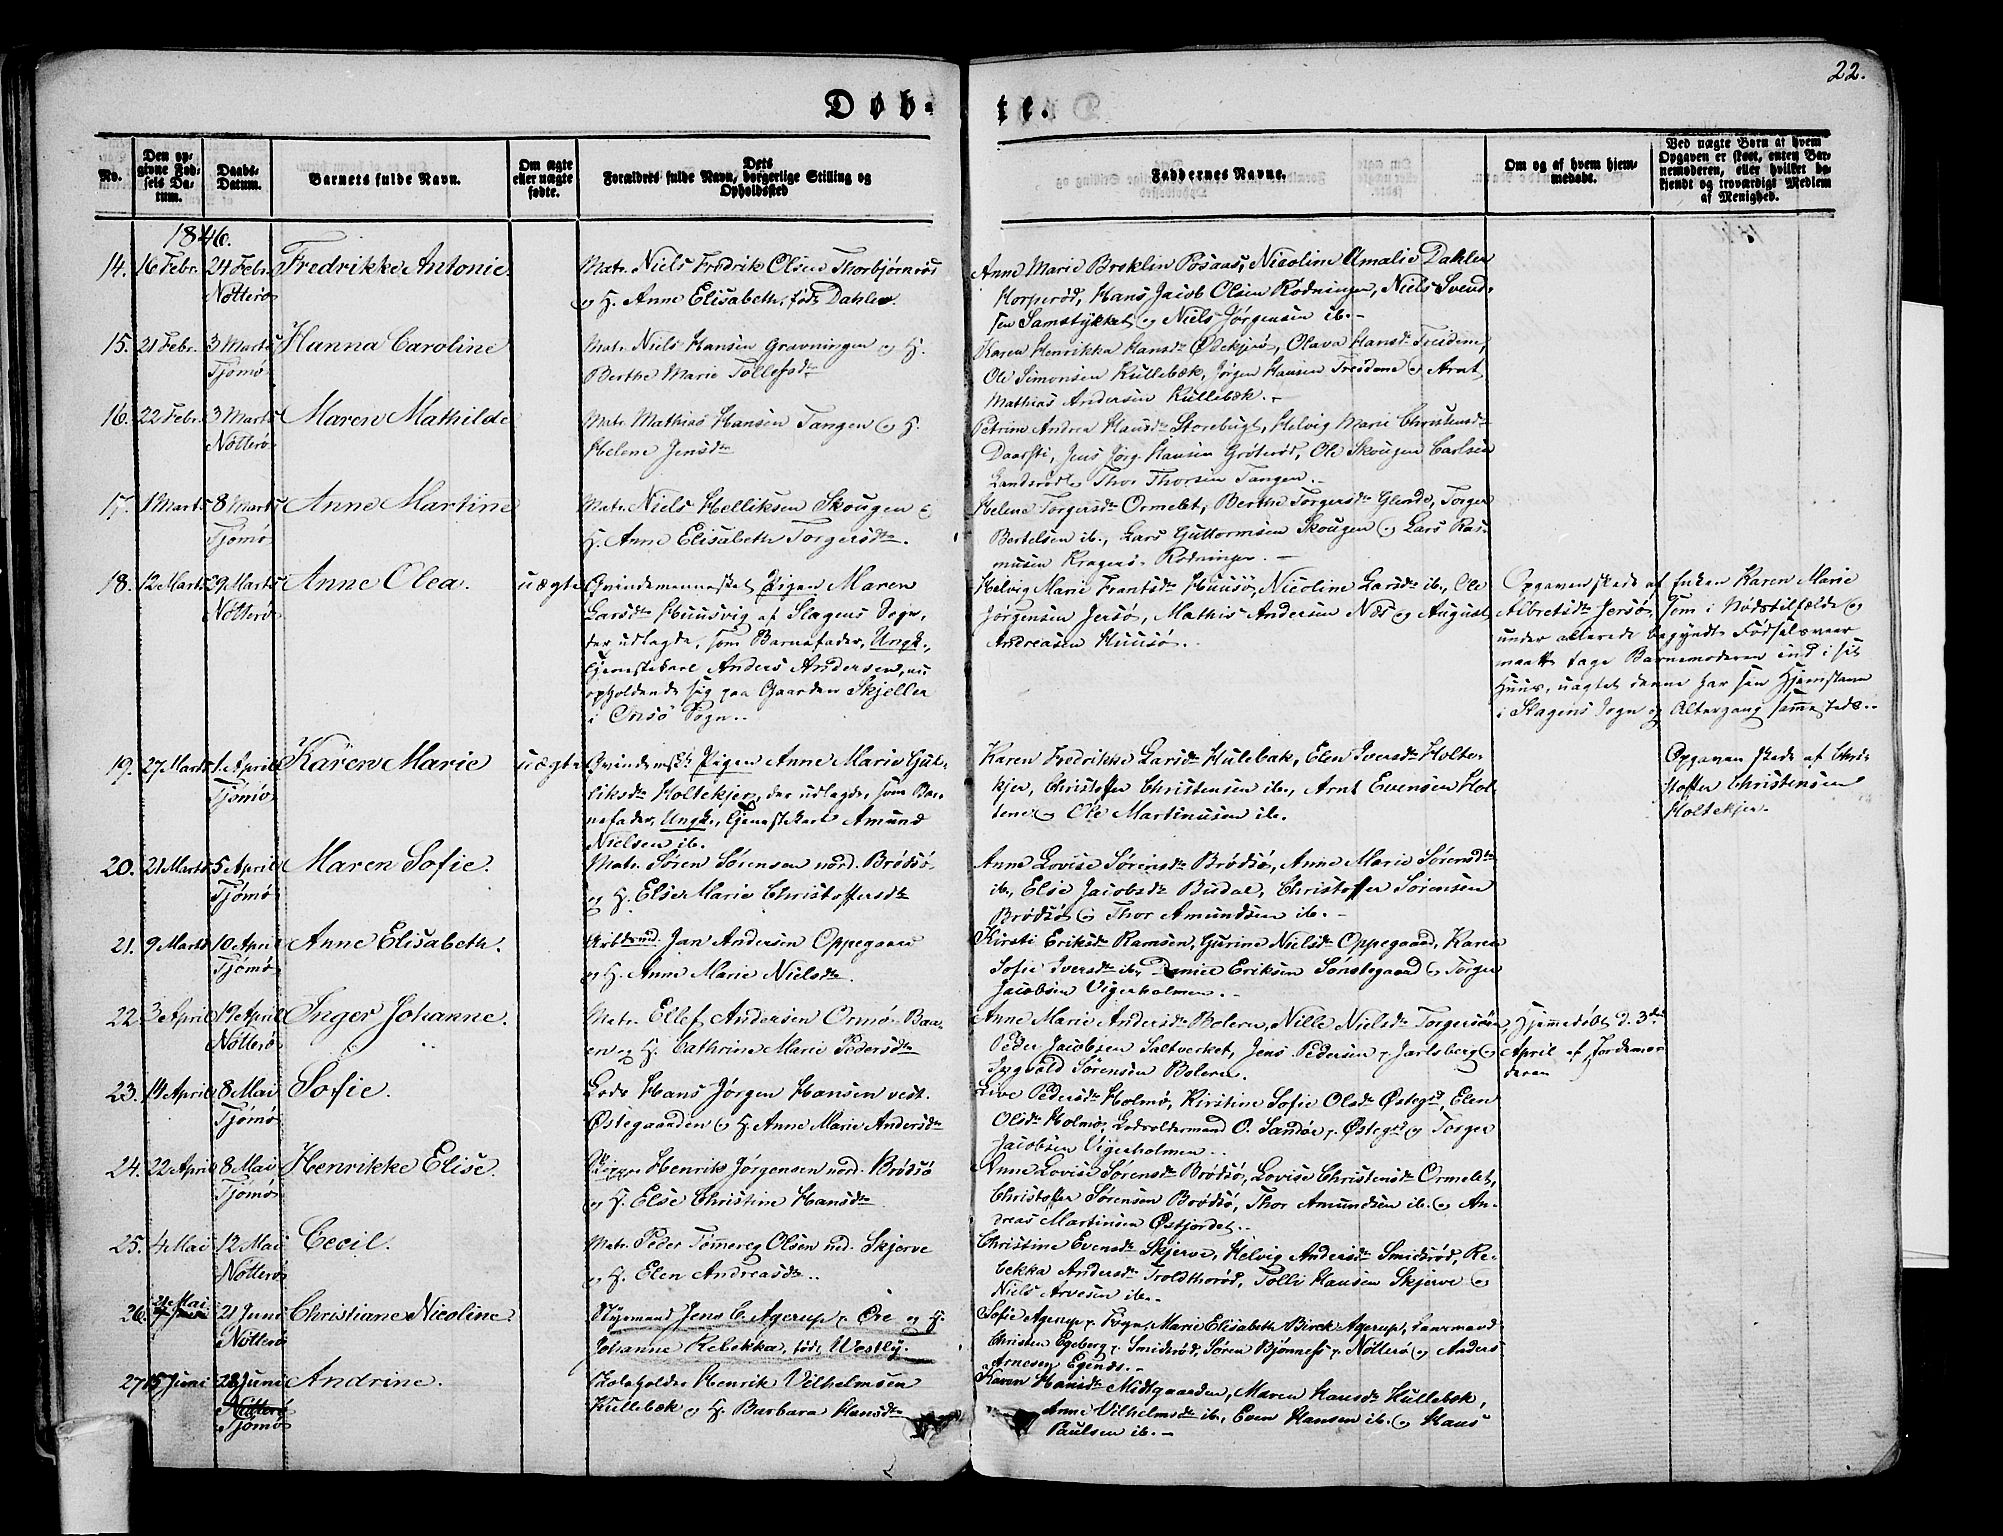 22.
Døb-
te.
No.
Den op-
givne Fød-
sels Da-
tum.
Daabs-
Datum.
Barnets fulde Navn.
Om ægte
eller uægte
fødte.
Dets
Forældres fulde Navn, borgerlige Stilling og
Opholdssted
Faddernes Navne.
Om og af hvem hjem-
medøbt.
Ved uægte Børn at hvem
Opgaven er skeet, enten Bar-
nemoderen, eller hvilket be-
kjendt og troværdigt Medlem
af Menighed.
1846.
14. 16 Febr. 24 Febr. Fredrikke Antonie
Nøtterø
Matr. Niels Fredrik Olsen Thorbjørnrød
og H. Anne Elisabeth, født Dahler.
Anne Marie Posaas, Nicoline Amalie Dahler
Korperød, Hans Jacob Olsen Rødningen, Niels Svend-
sen Samstykket og Niels Jørgensen ib.-
15. 21 Febr. 3 Marts Hanna Caroline
Tjømø
Matr. Niels Hansen Gravningen og H.
Berthe Marie Tollefsdtr
Karen Henrikka Hansdtr Ødekjær, Olava Hansdtr Treidene,
Ole Simonsen Kullebæk, Jørgen Hansen Treidene og Arnt
Mathias Andersen Kullebæk.-
16. 22 Febr. 3 Marts Maren Mathilde
Nøtterø
Matr. Mathias Hansen Tangen og H.
Helene Jensdtr
Petrine Andrea Hansdtr Storebugt, Helvig Marie Christensdtr
Jens Jørg. Hansen Grøterød, Ole Skougen Carlsen
Thor Thorsen Tangen.
17. 1 Marts 8 Marts Anne Martine
Tjømø
Matr. Niels Helliksen Skougen og
H. Anne Elisabeth Torgersdtr.
Helene Torgersdtr Ormelet, Berthe Torgersdtr Torger
Bertelsen ib., Lars Guttormsen Skougen og Lars Ras-
musen Rødningen.-
18. 12 Marts 29 Marts Anne Olea. uægte
Nøtterø
Qvindemennesket Pigen Maren
Larsdtr Huusvig af Slagens Sogn,
der udlagde, som Barnefader, Ungk.,
tjenestekarl Anders Andersen, nu
opholdende sig paa Gaarden Skjeller
i Onsø Sogn.
Helvig Marie Frantsdtr Huusø, Nicoline Larsdtr ib., Ole
Jørgensen Jersø, Mathis Andersen Næs og August
Andreasen Huusø.
Opgaven skede af Enken Karen Marie
Albretsdtr Jersø, som i Nødstilfælde og
under allerede begyndt Fødselsveer
maatte tage Barnemoderen ind i sit
Huus, uagtet denne har sin Hjemstavn
i Slagens Sogn og Altergang sammesteds.
19. 27 Marts 1 April Karen Marie uægte
Tjømø
Qvindemsk. Pigen Anne Marie Gul-
liksdtr Holtekjær, der udlagde, som Bar-
nefader, Ungk., tjenestekarl Amund
Nielsen ib.
Karen Fredrikke Larsdtr Hulebak, Elen Iversdtr Holte-
kjær, Christoffer Christensen ib., Arnt Evensen Hol-
tene og Ole Martinusen ib.
Opgaven skede af Chri-
stoffer Christensen
Holtekjær.
20. 21 Marts 5 April Maren Sofie.
Tjømø
Matr. Søren Sørensen nord. Brødsø
og H. Else Marie Christoffersdtr
Anne Lovise Sørensdtr Brødsø, Anne Marie Sørensdtr
ib., Else Jacobsdtr Budal, Christoffer Sørensen
Brødsø og Thor Amundsen ib.-
21. 9 Marts 10 April Anne Elisabeth.
Tjømø
Arbdsmd. Jan Andersen Oppegaard
og H. Anne Marie Nielsdtr.
Kirsti Eriksdtr Ramsen, Gurine Nielsdtr Oppegaard, Karen
Sofie Iversdtr ib., Daniel Eriksen Sønstegaard og Torger
Jacobsen Vigerholmen.-
22. 3 April 19 April Inger Johanne.
Nøtterø
Matr. Ellef Andersen Ormø-Baa-
en og H. Cathrine Marie Pedersdtr
Anne Marie Andersdtr Bolern, Nille Nielsdtr Torgersøen,
Peder Jacobsen Saltverket, Jens Pedersen p. Jarlsberg og
Ingvald Sørensen Bolern.
Hjemmedøbt d. 3die
April af Jordemo-
deren
23. 14 April 8 Mai Sofie.
Tjømø
Lods Hans Jørgen Hansen vest.
Østegaarden og H. Anne Marie Andersdtr
Live Pedersdtr Holmø, Kirstine Sofie Olsdtr Østegd, Elen
Olsdtr Holmø, Lodsoldermand O. Sandøe p. Østegd og Torger
Jacobsen Vigerholmen.
24. 22 April 8 Mai Henrikke Elise.
Tjømø
Skippr Henrik Jørgensen nord. Brødsø
og H. Else Christine Hansdtr
Anne Lovise Sørensdtr Brødsø, Lovise Christensdtr Ormelet,
Christofer Sørensen Brødsø, Thor Amundsen ib. og An-
dreas Martinsen Østjordet.
25. 4 Mai 12 Mai Cecil.
Nøtterø
Matr. Peder Tømmereg Olsen ned. Skjerve
og H. Elen Andreasdtr.
Christine Evensdtr Skjerve, Helvig Andersdtr Smidsrød, Re-
bekka Andersdtr Troldthorød, Tolle Hansen Skjerve og
Niels Arvesen ib.-
26. Mai 21 Juni Christiane Nicoline
Nøtterø
Styrmand Jens C. Agerup p. Øre og H.
Johanne Rebekka, født Westly.
Sofie Agerup p. Marie Elisabeth Birck Agerup, Lensmand
Christen Egeberg p. Smidsrød, Søren Bjønness p. Nøtterø og Anders
Arnesen Egends.-
27. 15 Juni 28 Juni Andrine.
Nøtterø
Tjømø
Skoleholder Henrik Vilhelmsen
Kullebæk og H. Barbara Hansdtr
Karen Hansdtr Midtgaarden, Maren Hansdtr Hullebæk,
Anne Vilhelmsdtr ib., Even Hansen ib. og Hans
Paulsen ib.-